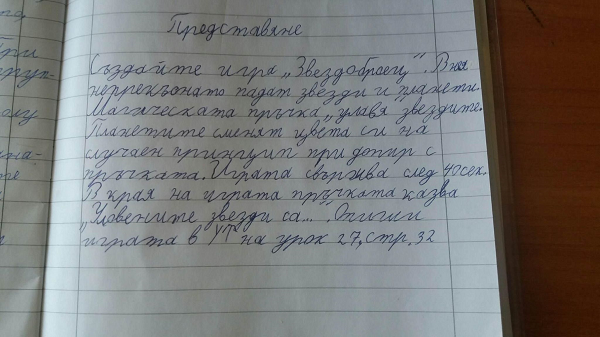 Представяне
Създайте игра „Звездоброец". В нея
непрекъснато падат звезди и планети.
Магическата пръчка „улавя звездите.
Планетите сменят цвета си на
случаен принцип при допир с
пръчката. Играта свършва след 40 сек.
В края на играта пръчката казва
„Уловените звезди са...". Опиши
играта в УТ на урок 27, стр. 32